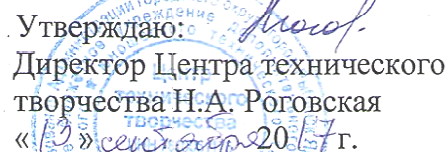 Утверждаю:
Директор Центра технического
творчества Н.А. Роговская
«13» сентября 2017 г.